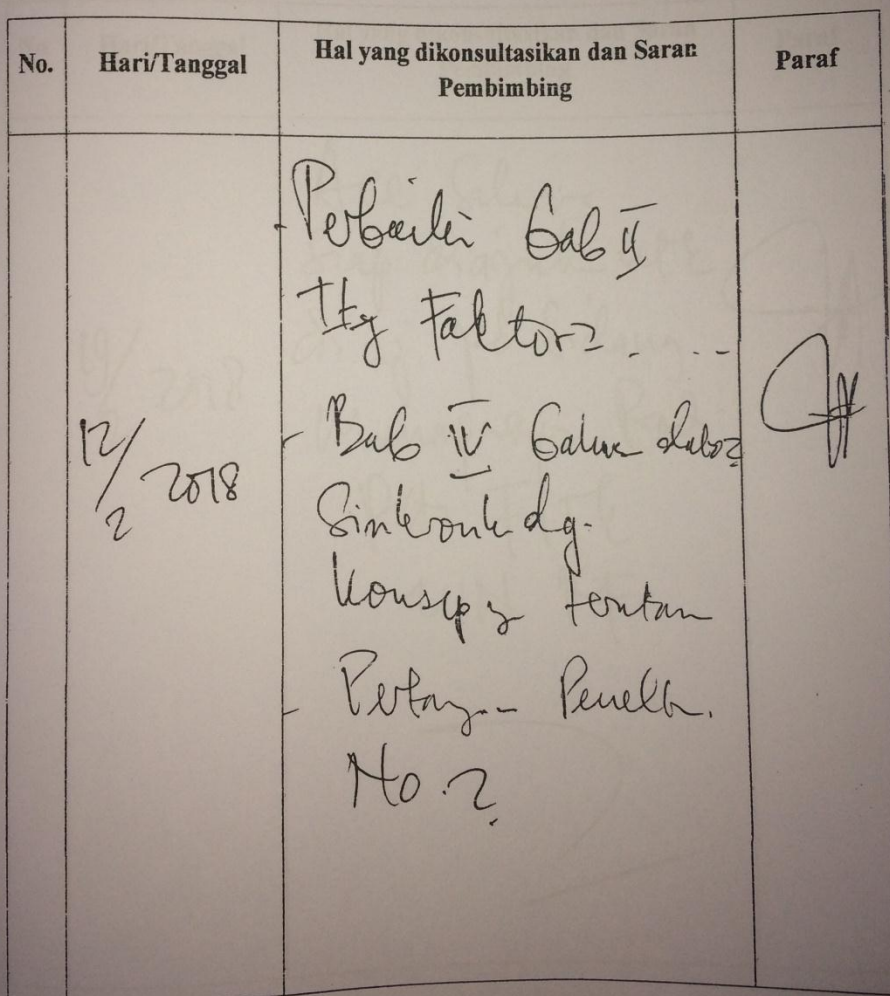 No.
Hari/Tanggal
Hal yang dikonsultasikan dan Saran
Pembimbing
Paraf
12/2 2018
- Perbaiki bab II
Ttg Faktor2 . ...
- Bab IV
Sinkronk dg.
Konsep y
- Penelt.
No. 2